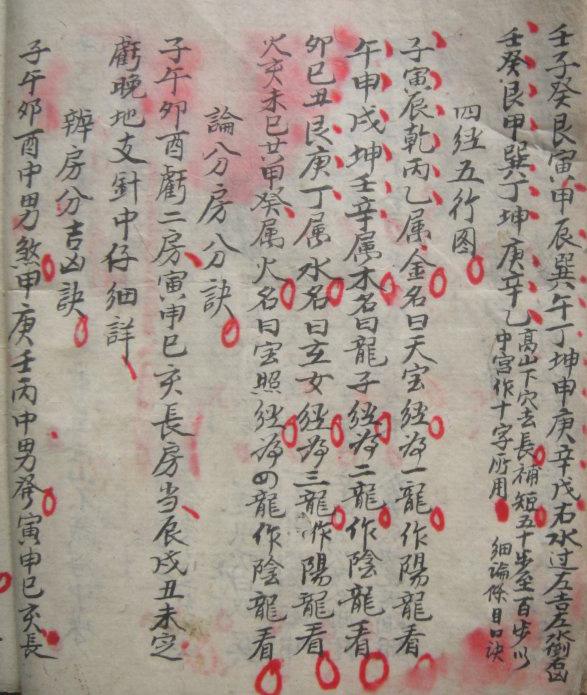 壬子癸艮寅甲辰巽午丁坤申庚辛戌右水过左吉左水倒右凶
壬癸艮甲巽丁坤庚辛乙
高山下穴去長補短五十步至百步以
中宮作十字所用 細論條目口訣
四經五行图
子寅辰乾丙乙属金名曰天宝經為一龍作陽龍看
午申戌坤壬辛属木名曰龍子經為二龍作陰龍看
卯巳丑艮庚丁属水名曰玄女經為三龍作陽龍看
火亥未巳廿甲癸属火名曰宝照經為四龍作陰龍看
論分房分訣
子午卯酉虧二房寅申巳亥長房当辰戌丑未定
虧晚地支針中仔細詳
辨房分吉凶訣
子午卯酉中男煞甲庚壬丙中男發寅申巳亥長